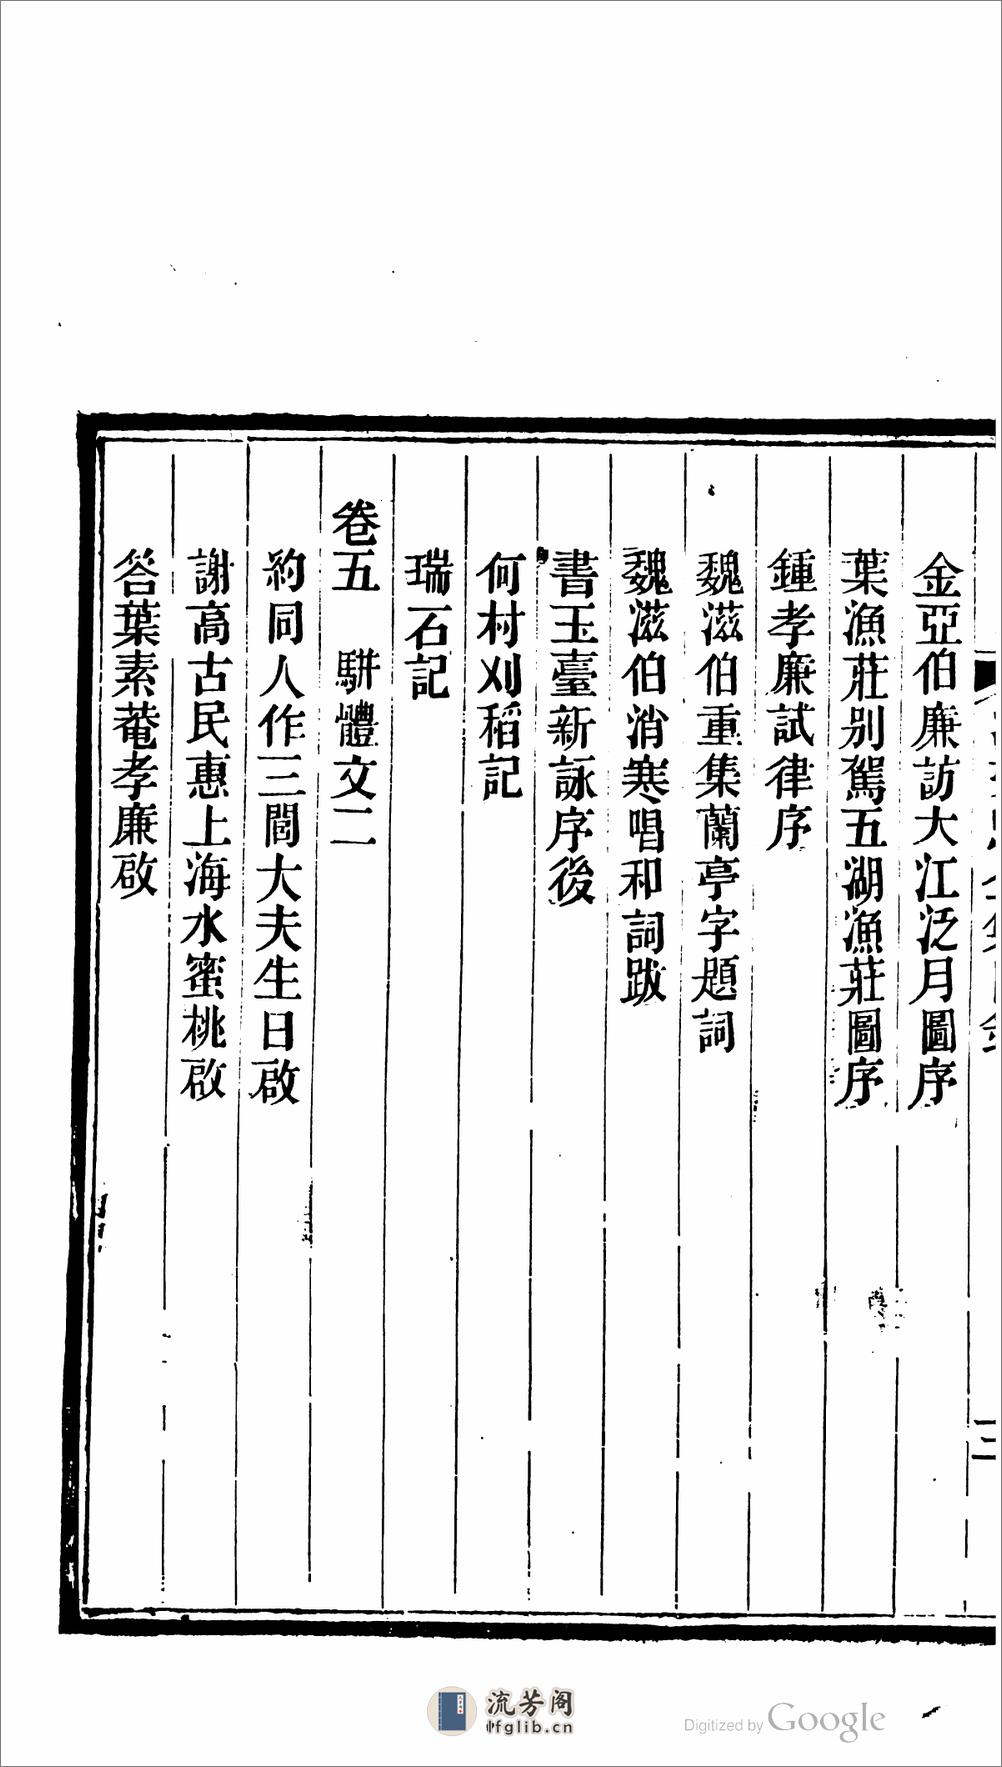 金亞伯廉訪大江泛月圖序
葉漁莊别駕五湖漁莊圖序
鍾孝廉試律序
魏滋伯重集蘭亭字題詞
魏滋伯消寒唱和詞跋
書玉臺新詠序後
何村刈稻記
瑞石記
卷五　駢體文二
約同人作三閭大夫生日啟
謝高古民惠上海水蜜桃啟
答葉素菴孝廉啟
流芳阁
fglib.cn
Digitized by Google